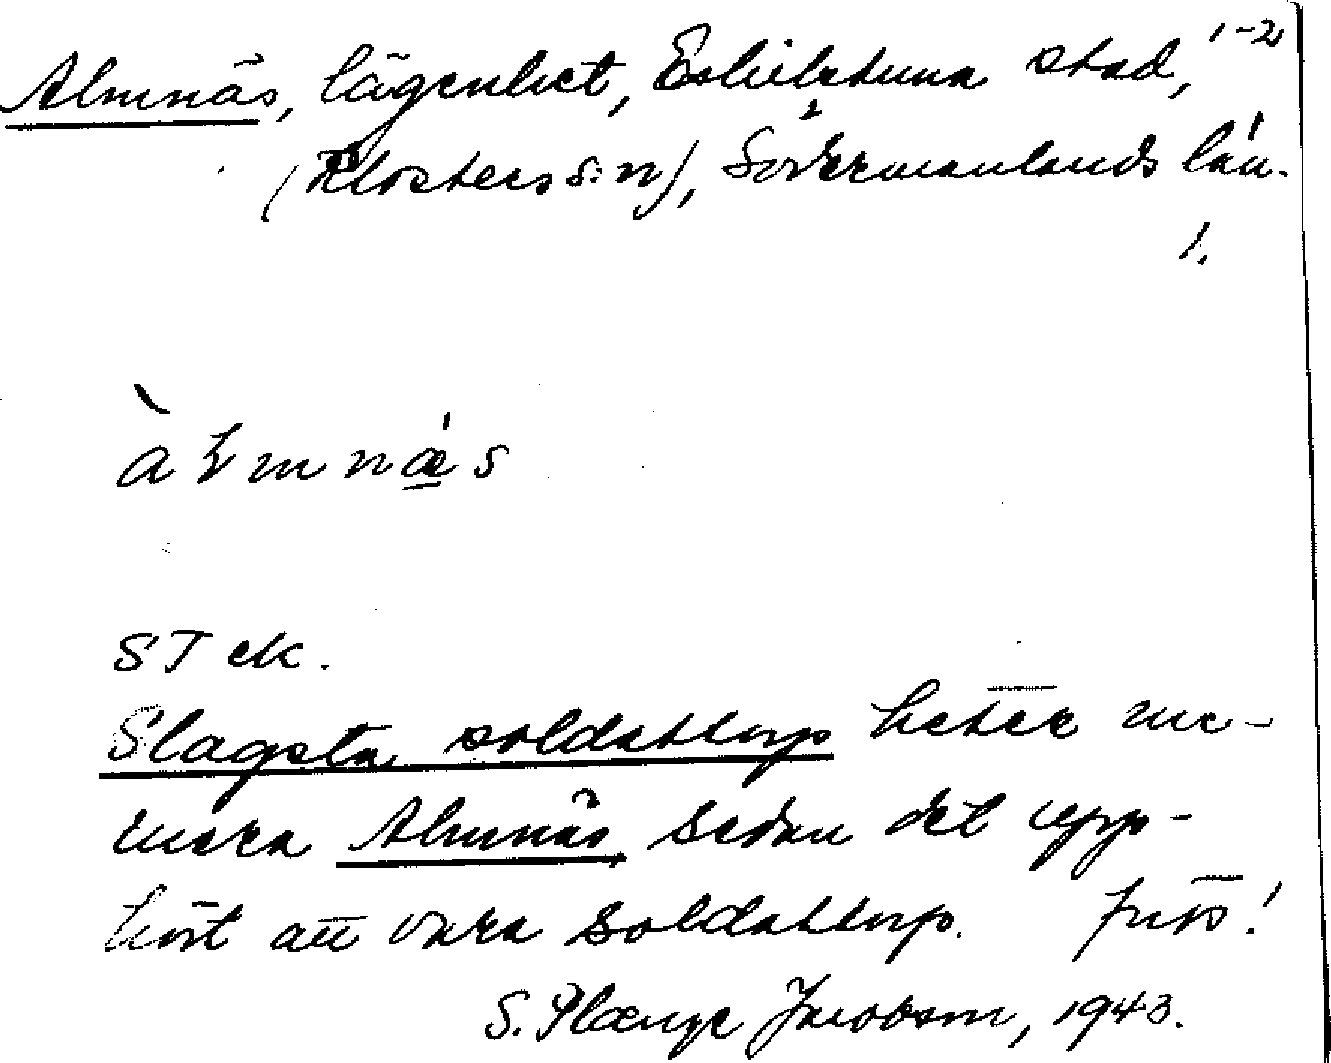 Almnäs, lägenhet, Eskilstuna stad, 1-2
(Klosters s:n), Södermanlands län.
1.
àłmnǽs
ST ek.
Slagsta soldattorp heter nu-
mera Almnäs, sedan det upp-
hört att vara soldattorp.
S. Plænge Jacobson, 1943.